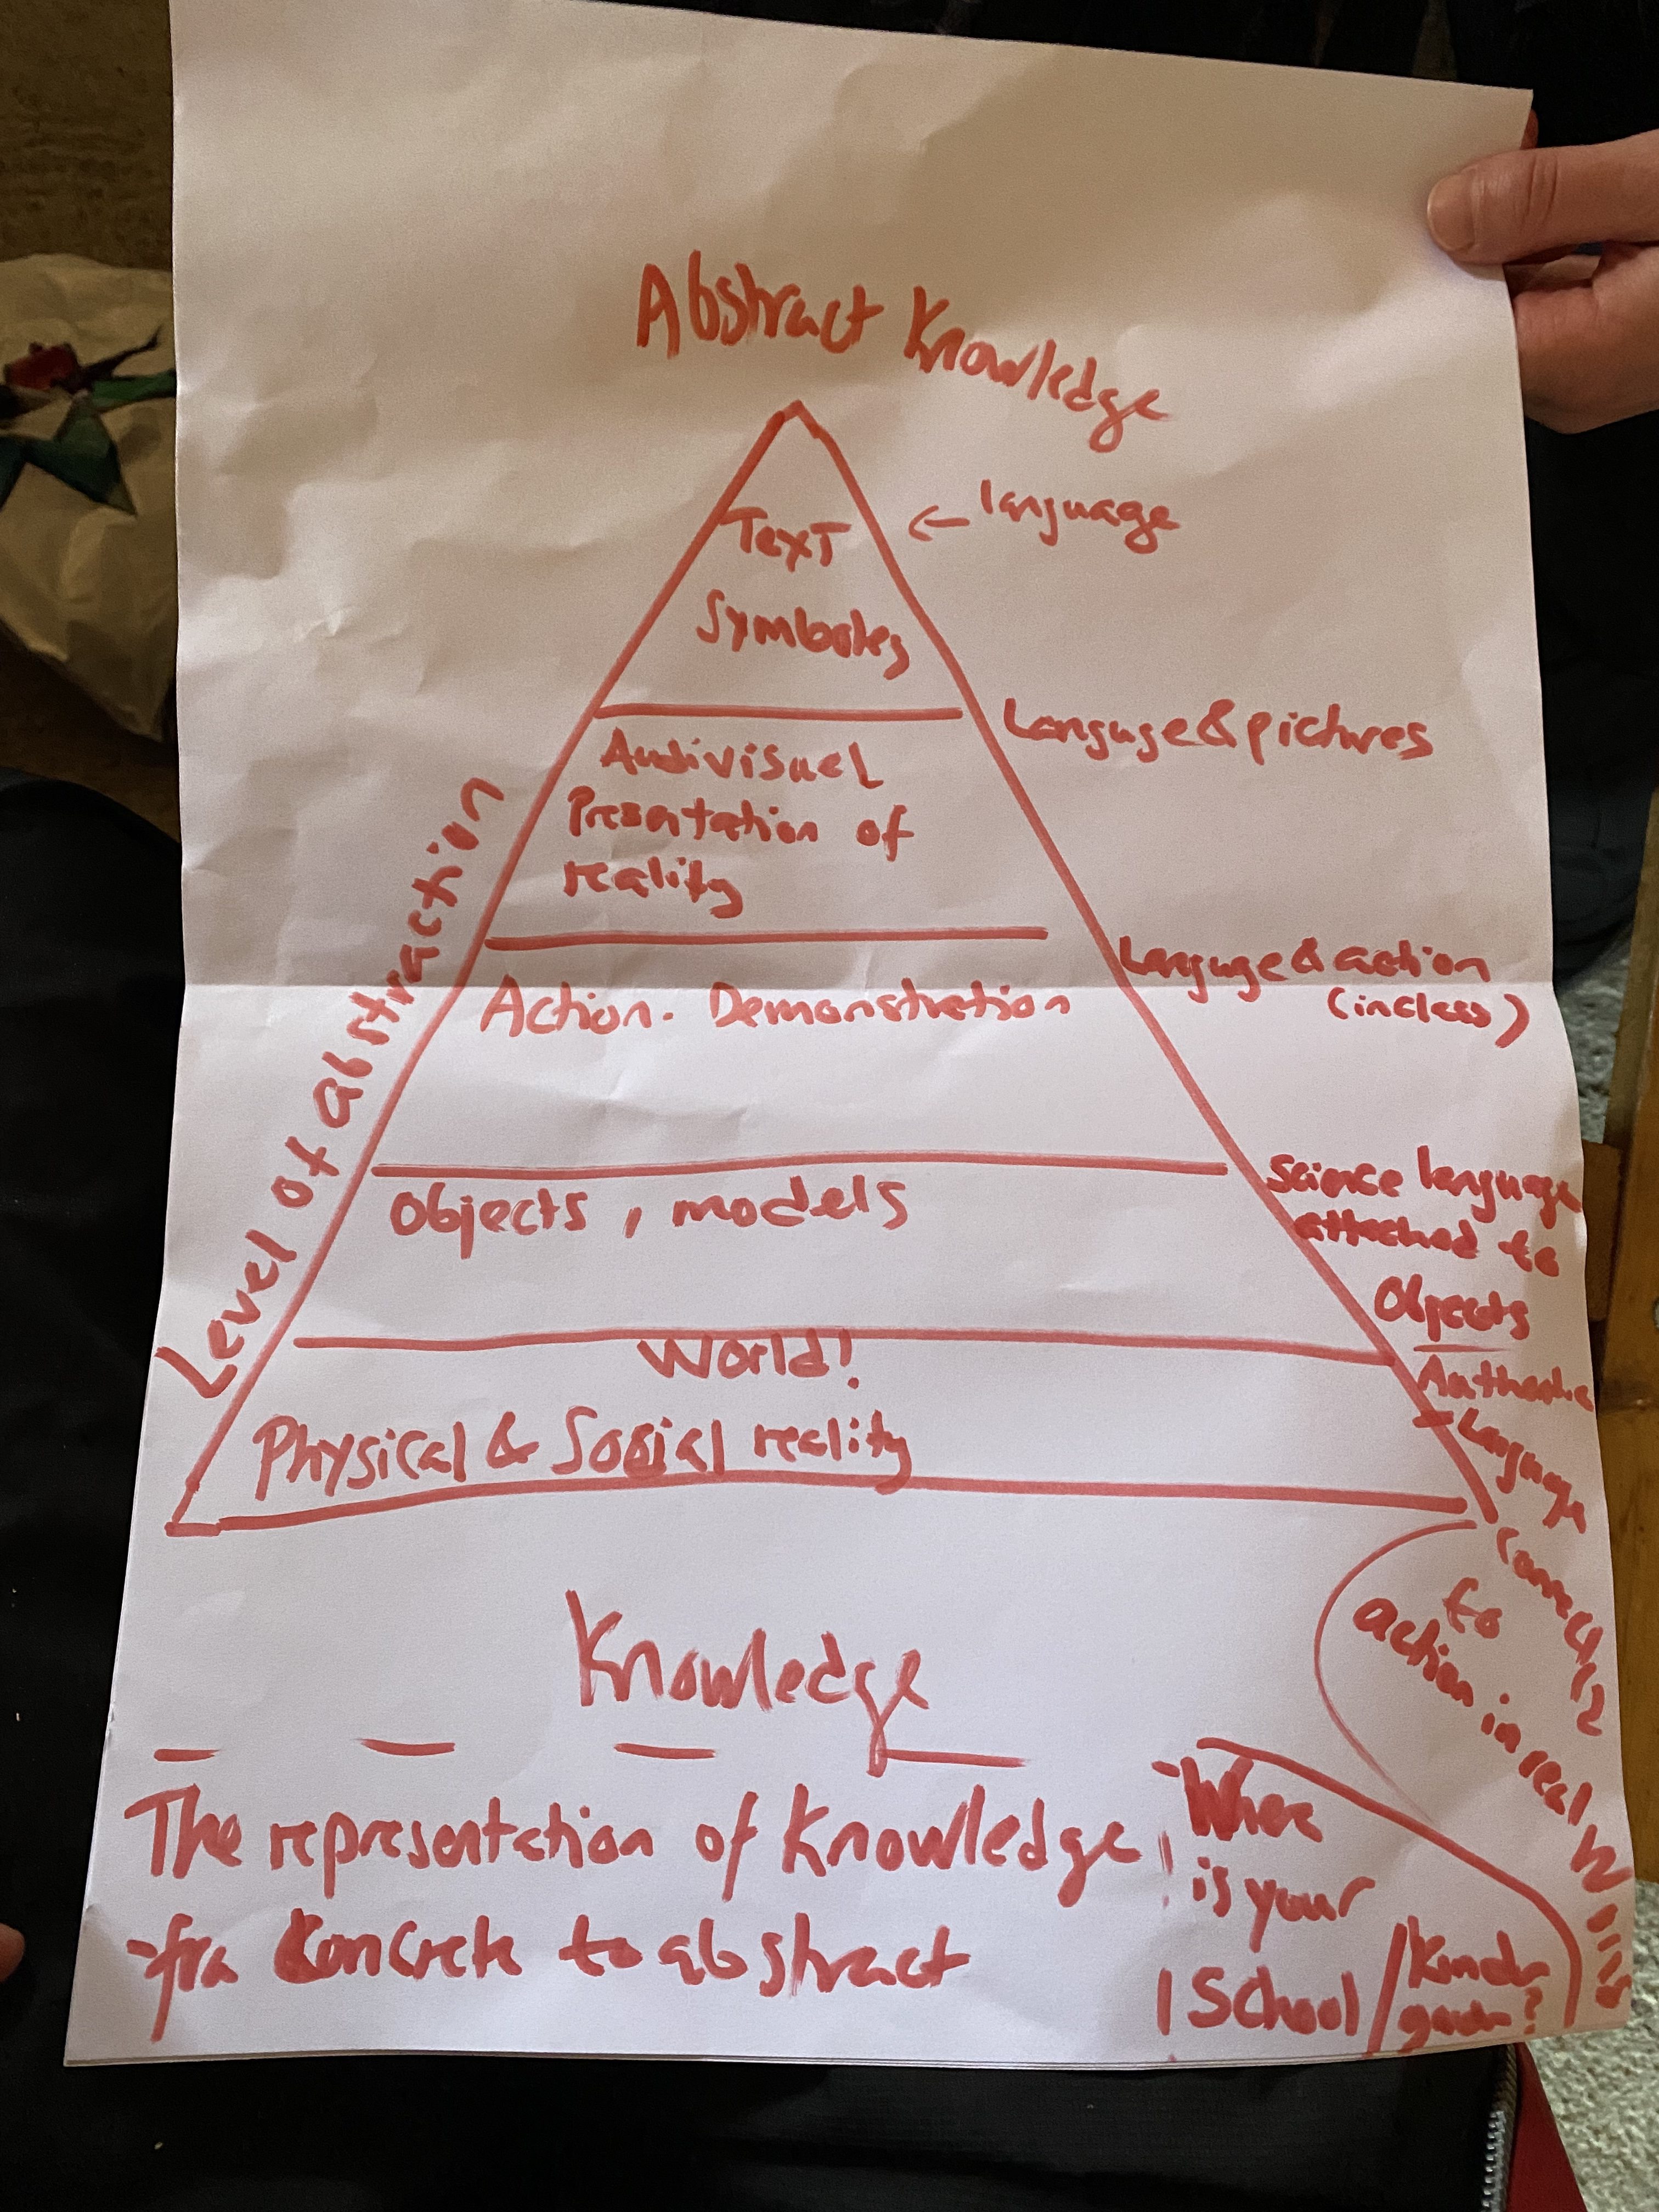 Abstract Knowledge
Text
← language
Symboles
Language & pictures
Audivisuel
Presentation of
reality
Level of abstraction
Action. Demonstration
Language & action
(in class)
Objects, models
Science language
attached to
Objects
World!
Physical & Social reality
Authentic
Language
connected
to
action in real
Knowledge
The representation of Knowledge
-fra Concrete to abstract
-Where
is your
School/
Kinder
garden?